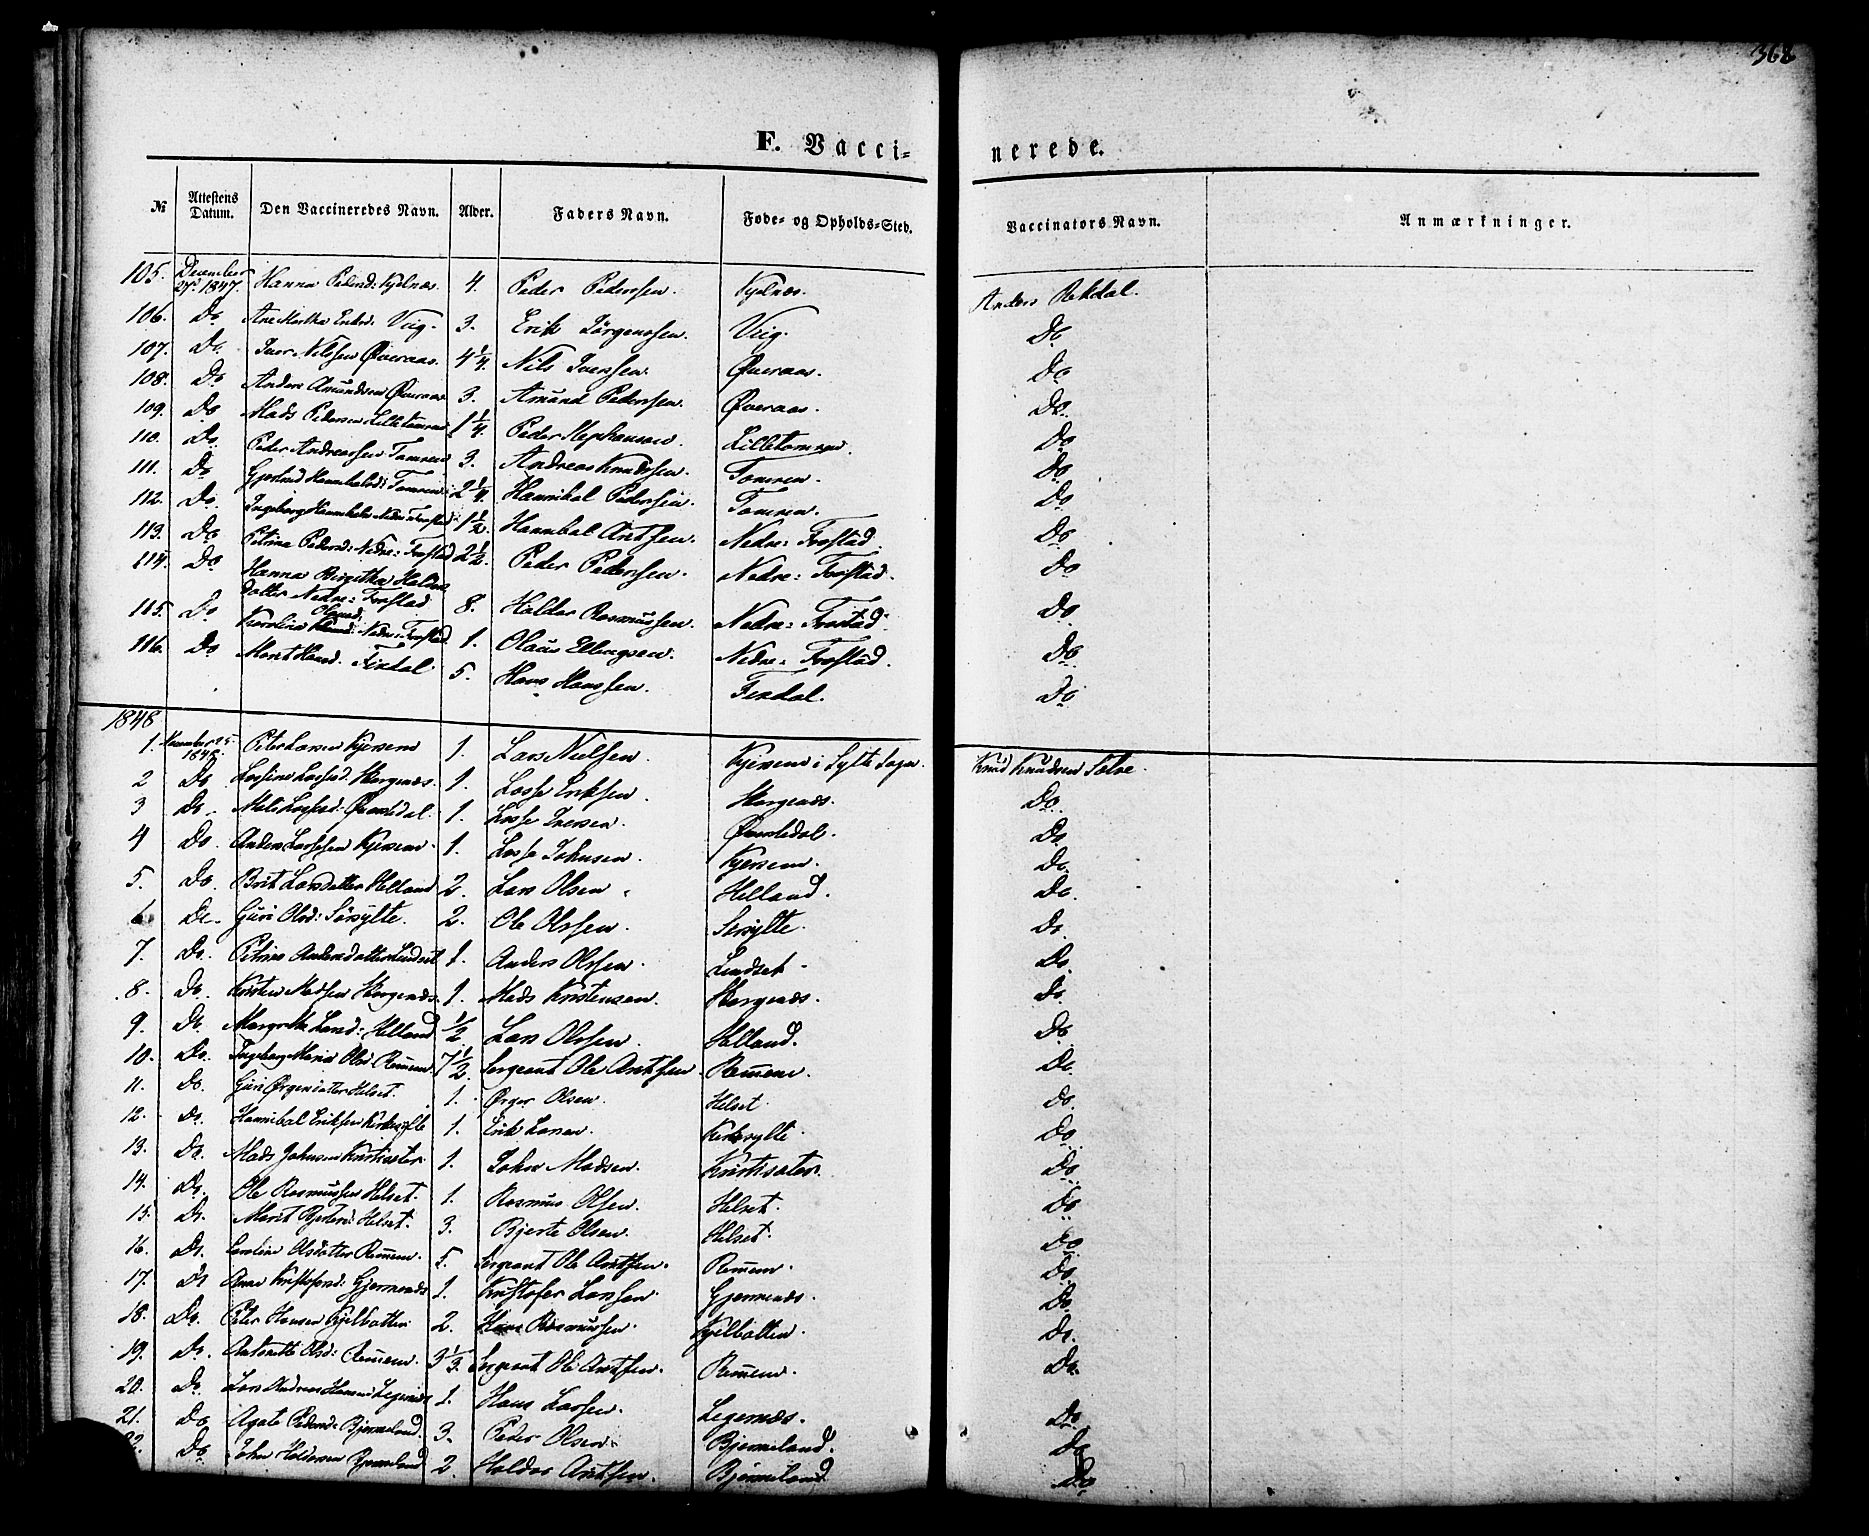 368
F. Vacci=
nerede.
№ Attestens Datum. Den Vaccineredes Navn. Alder. Faders Navn. Føde= og Opholds=Sted. Vaccinators Navn. Anmærkninger.
105. December 27. 1847. Hanna Pedersd: Kjelnæs 4. Peder Pederssen. Kjelnæs. Anders Rekdal.
106. Do Ane Martha Eriksd: Veig. 3. Erik Jörgenssen. Veig. Do
107. Do. Iver Nilssen Øveraas. 4 1/4. Nils Iverssen. Øveraas. Do
108. Do Anders Amundssen Øveraas 3. Amund Pederssen. Øveraas. Do.
109. Do Mads Pedersen Lilletomren 1 1/4. Peder Stephansen. Lilletomren. Do
110. Do Peder Andreassen Tomren 3. Andreas Knudssen. Tomren. Do
111. Do Gjertrud Hannibalsd: Tomren 2 1/4. Hannibal Pederssen. Tomren. Do
112. Do. Ingeborg Hannibalsd: Nedre: Frostad 1 1/2. Hannibal Antssen. Nedre: Frostad. Do
113. Do Petrina Pedersd: Nedre: Frostad 2 1/2. Peder Pederssen. Nedre: Frostad. Do
114. Do Hanna Birgitha Haldor
datter Nedre: Frostad 8. Haldor Rasmussen. Nedre: Frostad. Do
115. Do Karolina Olausd: Nedre: Frostad 1. Olaus Ellingsen. Nedre: Frostad. Do
116. Do Marit Hansd. Tixdal. 5. Hans Hanssen. Tixdal. Do
1848
1. November 25 1848. Peter Larsen Kjersem 1. Lars Nielsen. Kjersem i Sylte Sogn. Knud Knudsen Solve.
2 Do Lassine Lassed. Horgenæs. 1. Lasse Eriksen. Horgenæs. Do.
3 Do. Mali Lassed: Øverdal. 1. Lasse Iversen. Do
4 Do. Anders Lassesen Kjersem. 1. Lasse Johnsen. Kjersem. Do.
5. Do Brit Larsdatter Helland 2. Lars Olsen. Helland. Do.
6. Do. Guri Olsd: Sörsylte. 2. Ole Olssen. Sörsylte. Do.
7. Do. Petrine Andersdatter Lindset 1. Anders Olssen. Lindset. Do.
8. Do. Kristen Madsen Horgenæs. 1. Mads Kristensen. Horgenæs. Do.
9. Do. Margrethe Larsd: Helland 1/2 Lars Olssen. Helland. Do
10. Do. Ingeborg Maria Olsd Remem. 7 1/2. Sergeant Ole Antssen. Remem. Do.
11. Do. Guri Ørgersdatter Helset. 1. Ørger Olsen. Helset. Do.
12. Do. Hannibal Eriksen Kirkesylte 1. Erik Larsen. Kirkesylte. Do
13. Do. Mads Johnsen Kristisæter. 1. John Madsen. Kristisæter. Do
14. Do. Ole Rasmussen Helset. 1. Rasmus Olsen. Helset. Do
15. Do. Marit Bjertesd: Helset. 3. Bjerte Olsen. Helset. Do
16. Do. Caroline Olsdatter Remem. 5. Sergeant Ole Antssen. Remem. Do
17. Do Anne Kristofersd: Gjermenæs 1. Kristofer Larsen. Gjermenæs. Do
18. Do. Peter Hansen Kjelbotten. 2. Hans Rasmussen. Kjelbotten. Do.
19. Do. Antonette Olsd: Remem. 3 1/3. Sergeant Ole Antssen. Remem. Do.
20. Do. Lars Andreas Hansen Legernæs 1. Hans Larsen. Legernæs. Do
21. Do Agate Pedersd: Bjermeland. 3. Peder Olsen. Bjermeland. Do
22. Do John Haldorsen Bjermeland 2. Haldor Antssen. Bjermeland. Do